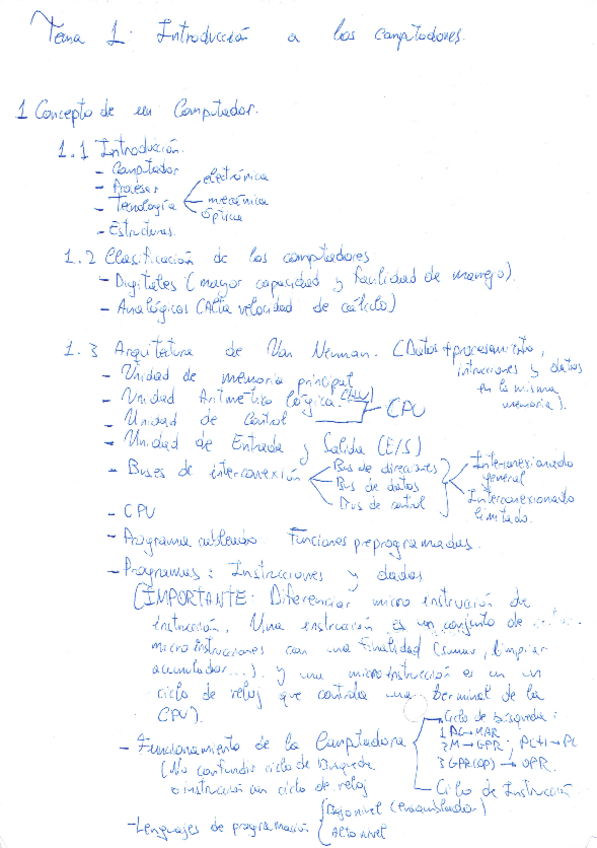 Tema 1: Introducción a los computadores.
1 Concepto de un Computador.
1.1 Introducción.
- Computador
- Proceso
- Tecnología
electrónica
mecánica
óptica
- Estructuras
1.2 Clasificación de los computadores
- Digitales (mayor capacidad y facilidad de manejo).
- Analógicos (Alta velocidad de cálculo)
1.3 Arquitectura de Van Neuman. (Datos + procesamiento,
intrucciones y datos
en la misma
memoria).
- Unidad de memoria principal
- Unidad Aritmético lógica. (ALU)
- Unidad de Control
CPU
- Unidad de Entrada y Salida (E/S)
- Buses de interconexión
Bus de direcciones
Bus de datos
Bus de control
Interconexionado
general
Interconexionado
limitado.
- CPU
- Programa cableado. Funciones preprogramadas.
- Programas: Instrucciones y dados
(IMPORTANTE: Diferenciar micro instrucción de
instrucción. Una instrucción es un conjunto de
microinstrucciones con una finalidad (sumar, limpiar
acumulador...). y una microinstrucción es en un
ciclo de reloj que controla una terminal de la
CPU).
- Funcionamiento de la Computadora
(No confundir ciclo de Busqueda
o instrucción con ciclo de reloj
Ciclo de búsqueda:
1 PC→MAR
2 M→GPR; PC+1→PC
3 GPR(OP)→OPR.
Ciclo de Instrucción
- Lenguajes de programación
Bajo nivel (ensamblador)
Alto nivel